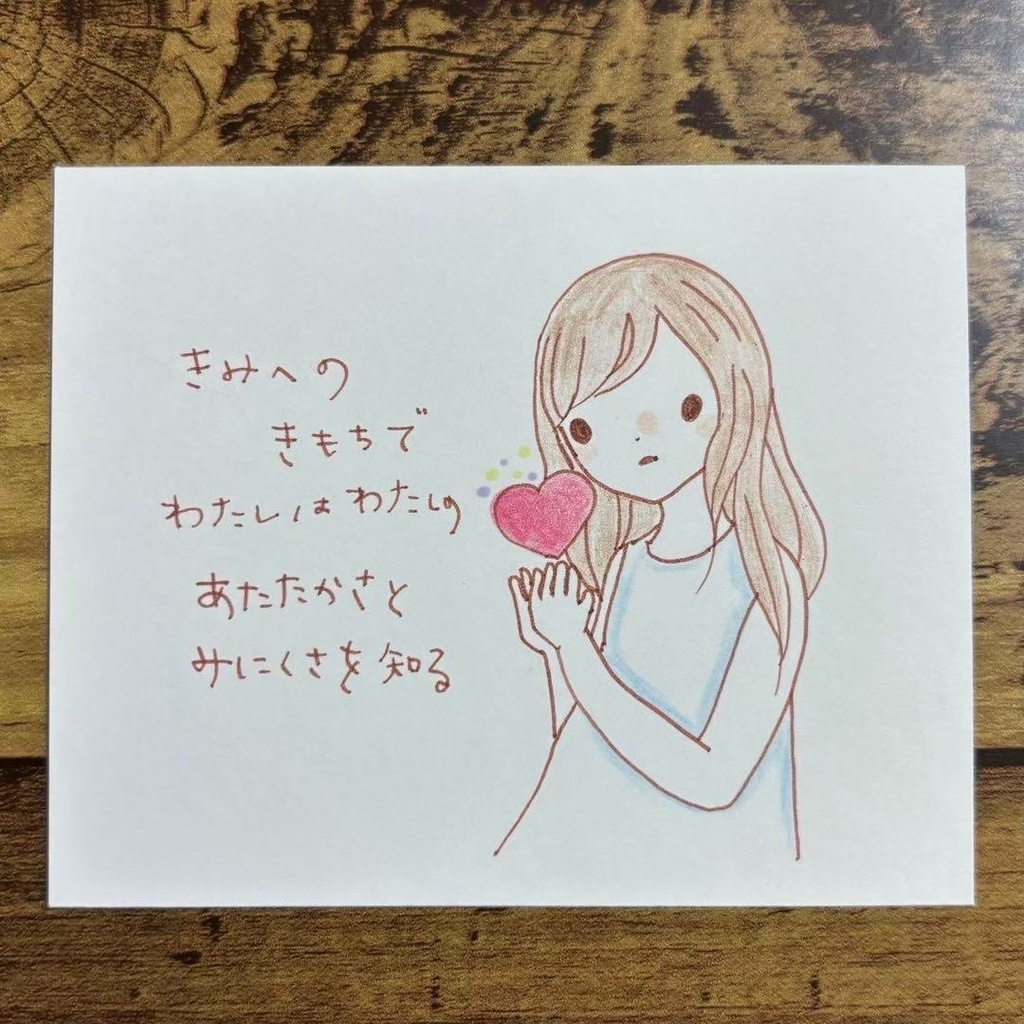 きみへの
きもちで
わたしはわたしの
あたたかさと
みにくさを知る